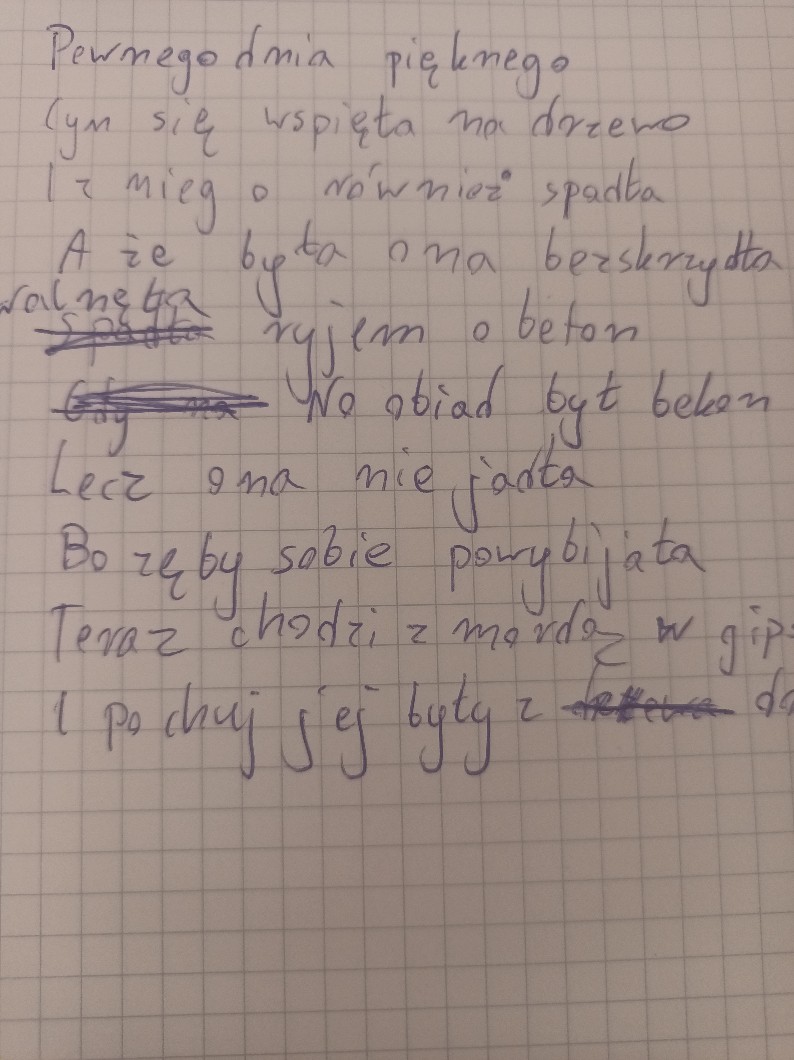 Pewnego dnia pięknego
Cym się wspięła na drzewo
I z niego również spadła
A że była ona bezskrzydła
walnęła ryjem o beton
No obiad był bekon
Lecz ona nie jadła
Bo zęby sobie powybijała
Teraz chodzi z mordą w gips
I po chuj jej były z do